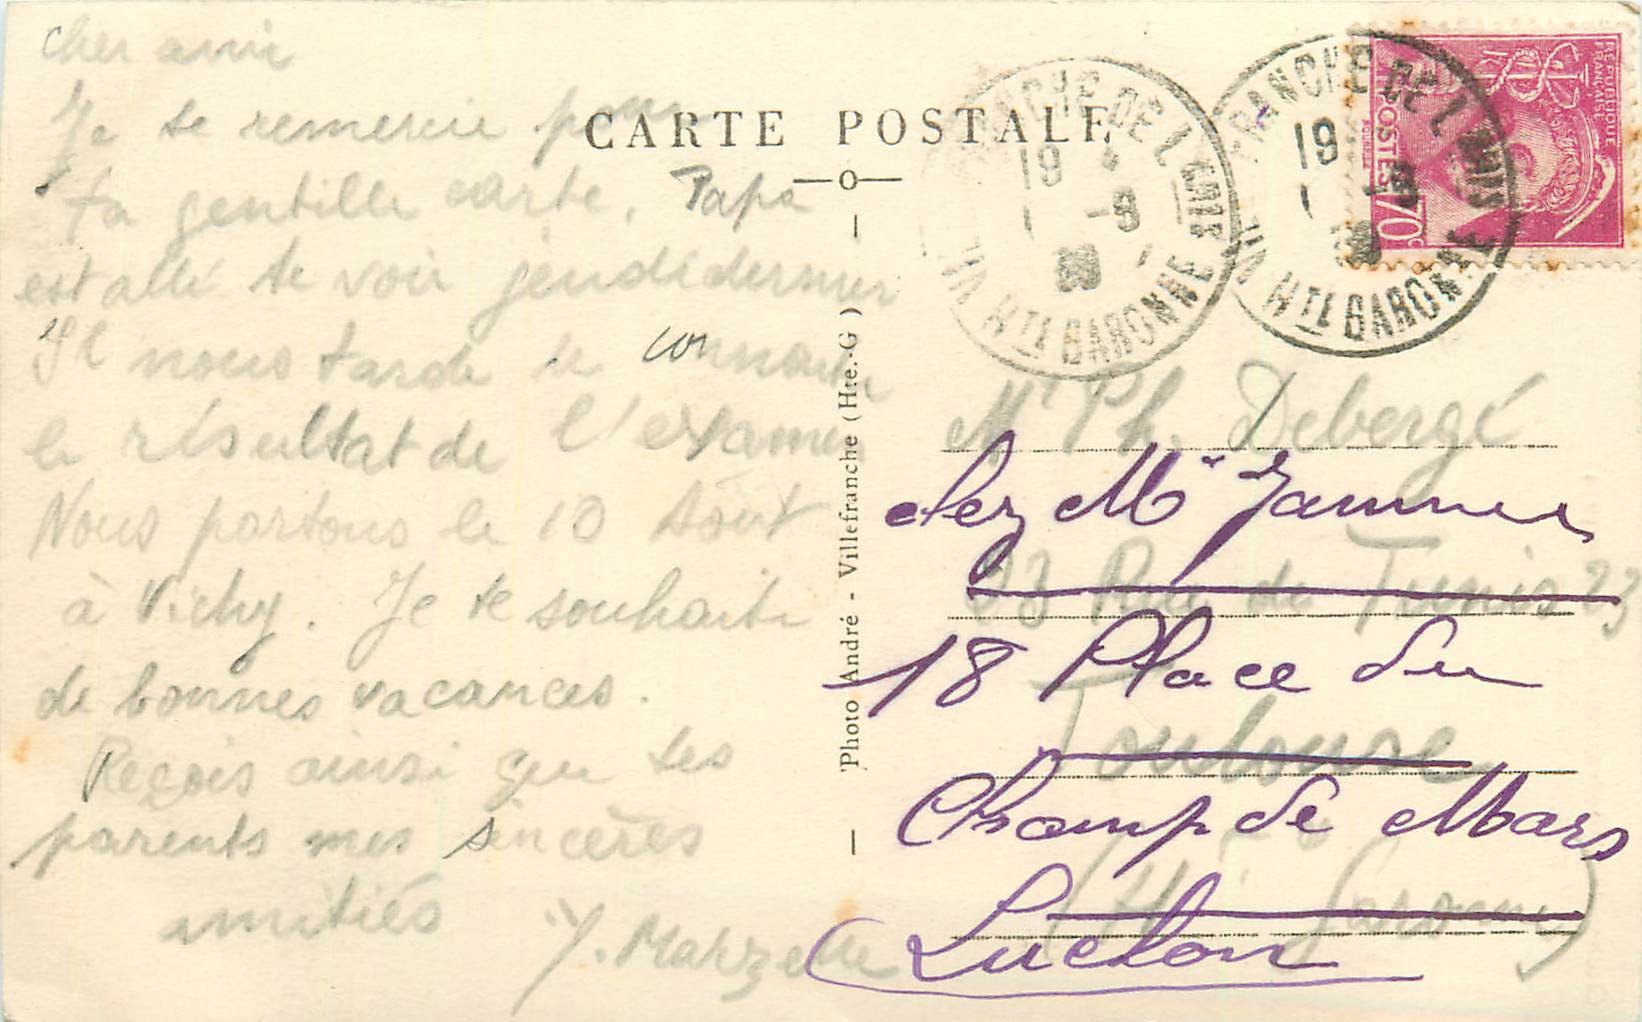 cher ami
Je te remercie pour
ta gentille carte. Papa
est allé te voir jeudi dernier
Il nous tarde de connaitre
le résultat de l'examen
Nous partons le 10 Aout
à Vichy. Je te souhaite
de bonnes vacances.
Reçois ainsi que tes
parents mes sincères
amitiés
J. Marzelle
CARTE POSTALE
Photo André - Villefranche (Hte.-G)
FRANCHE DE LAUR
19
1 -8
Hte GARONNE
FRANCHE DE LAUR
19
Hte GARONNE
RÉPUBLIQUE
FRANÇAISE
POSTES
70c
Mr Ph. Debergé
chez Mr Jammes
23 Rue de Tunis 23
18 Place du
Toulouse
Champ de Mars
(Hte Garonne)
Luchon